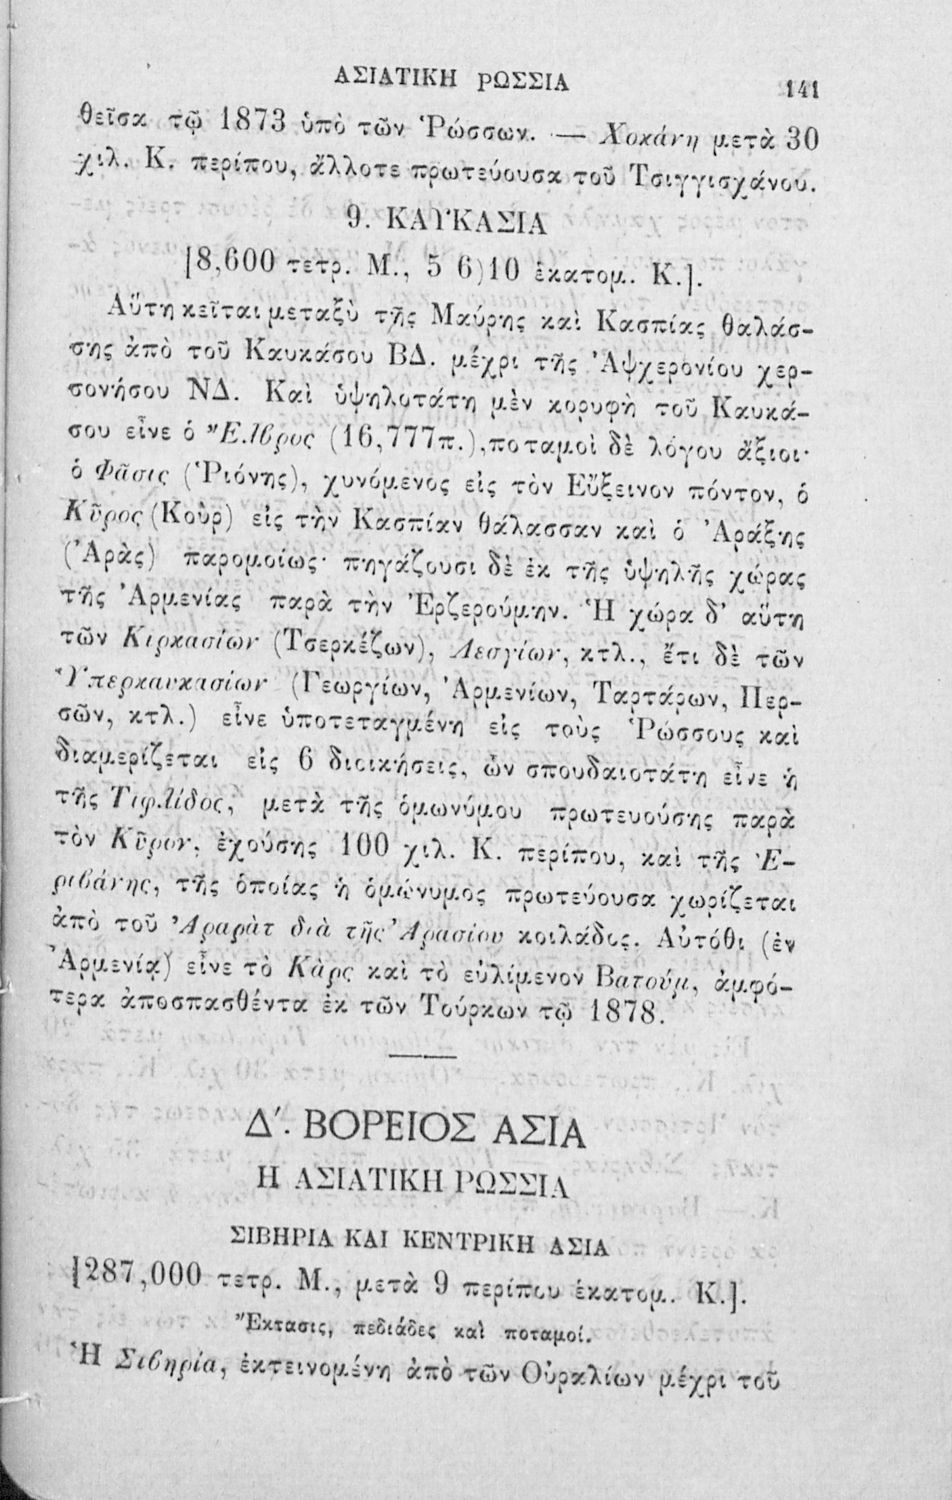 ΑΣΙΑΤΙΚΗ ΡΩΣΣΙΑ 141
θεῖσα τῷ 1873 ὑπὸ τῶν Ῥώσσων. — Χοκάνη μετὰ 30
χιλ. Κ. περίπου, ἄλλοτε πρωτεύουσα τοῦ Τσιγγισχάνου.
9. ΚΑΥΚΑΣΙΑ
[8,600 τετρ. Μ., 5 6)10 ἑκατομ. Κ.].
Αὕτη κεῖται μεταξὺ τῆς Μαύρης καὶ Κασπίας θαλάσ-
σης ἀπὸ τοῦ Καυκάσου ΒΔ. μέχρι τῆς Ἀψχερονίου χερ-
σονήσου ΝΔ. Καὶ ὑψηλοτάτη μὲν κορυφὴ τοῦ Καυκά-
σου εἶνε ὁ Ἔλβρος (16,777π.),ποταμοὶ δὲ λόγου ἄξιοι·
ὁ Φᾶσις (Ῥιόνης), χυνόμενος εἰς τὸν Εὔξεινον πόντον, ὁ
Κῦρος (Κοὺρ) εἰς τὴν Κασπίαν θάλασσαν καὶ ὁ Ἀράξης
(Ἀρὰς) παρομοίως· πηγάζουσι δὲ ἐκ τῆς ὑψηλῆς χώρας
τῆς Ἀρμενίας παρὰ τὴν Ἐρζερούμην. Ἡ χώρα δ' αὕτη
τῶν Κιρκασίων (Τσερκέζων), Λεσγίων, κτλ., ἔτι δὲ τῶν
Ὑπερκαυκασίων (Γεωργίων, Ἀρμενίων, Ταρτάρων, Περ-
σῶν, κτλ.) εἶνε ὑποτεταγμένη εἰς τοὺς Ῥώσσους καὶ
διαμερίζεται εἰς 6 διοικήσεις, ὧν σπουδαιοτάτη εἶνε ἡ
τῆς Τιφλίδος, μετὰ τῆς ὁμωνύμου πρωτευούσης παρὰ
τὸν Κῦρον, ἐχούσης 100 χιλ. Κ. περίπου, καὶ τῆς Ἐ-
ριβάνης, τῆς ὁποίας ἡ ὁμώνυμος πρωτεύουσα χωρίζεται
ἀπὸ τοῦ Ἀραρὰτ διὰ τῆς Ἀρασίου κοιλάδος. Αὐτόθι (ἐν
Ἀρμενίᾳ) εἶνε τὸ Κὰρς καὶ τὸ εὐλίμενον Βατούμ, ἀμφό-
τερα ἀποσπασθέντα ἐκ τῶν Τούρκων τῷ 1878.
Δ'. ΒΟΡΕΙΟΣ ΑΣΙΑ
Η ΑΣΙΑΤΙΚΗ ΡΩΣΣΙΑ
ΣΙΒΗΡΙΑ ΚΑΙ ΚΕΝΤΡΙΚΗ ΑΣΙΑ
[287,000 τετρ. Μ., μετὰ 9 περίπου ἑκατομ. Κ.].
Ἔκτασις, πεδιάδες καὶ ποταμοί.
Ἡ Σιβηρία, ἐκτεινομένη ἀπὸ τῶν Οὐραλίων μέχρι τοῦ